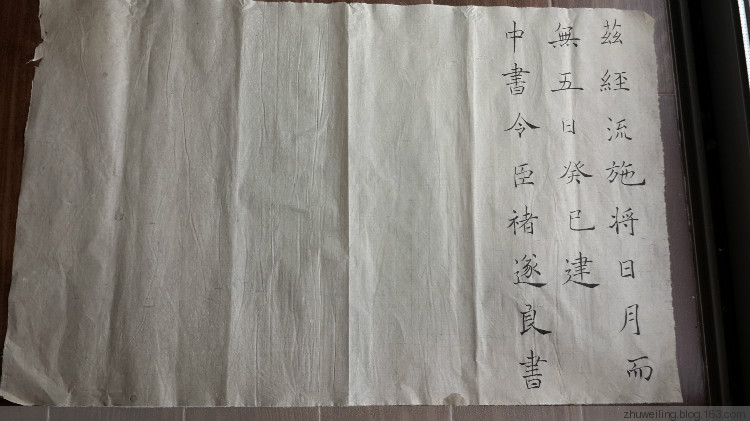 茲經流施将日月而
無五日癸巳建
中書令臣褚遂良書
zhuweiling.blog.163.com